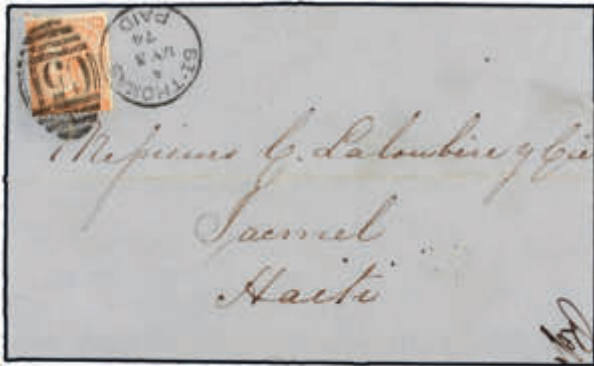 C51
ST. THOMAS
PAID
A
MY 8
74
Messieurs C. Laloubère y Cie
Jacmel
Haiti